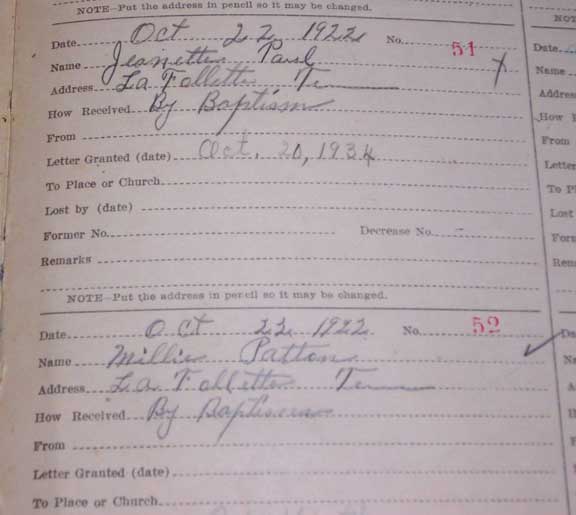 NOTE—Put the address in pencil so it may be changed.
Date Oct 22 1922 No. 51
Name Jeanette Paul
Address La Follette, Te
How Received By Baptism
From
Letter Granted (date) Oct. 20, 1934
To Place or Church
Lost by (date)
Former No. Decrease No.
Remarks
NOTE—Put the address in pencil so it may be changed.
Date Oct 22 1922 No. 52
Name Millie Patton
Address La Follette Tenn
How Received By Baptism
From
Letter Granted (date)
To Place or Church
NOT
Date
Name
Addres
How
From
Letter
To Pl
Lost
Form
Rem
Da
Na
A